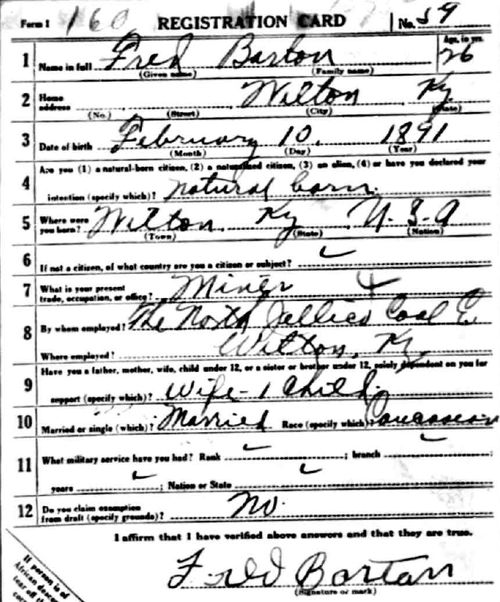 Form 1 160 REGISTRATION CARD No. 59
1 Name in full Fred Barton Age, in yrs. 26
(Given name) (Family name)
2 Home address Wilton Ky
(No.) (Street) (City) (State)
3 Date of birth February 10 1891
(Month) (Day) (Year)
4 Are you (1) a natural-born citizen, (2) a naturalized citizen, (3) an alien, (4) or have you declared your
intention (specify which)? natural born.
5 Where were you born? Wilton Ky U.S.A
(Town) (State) (Nation)
6 If not a citizen, of what country are you a citizen or subject?
7 What is your present trade, occupation, or office? Miner
8 By whom employed? The North Jellico Coal C.
Where employed? Wilton, Ky
9 Have you a father, mother, wife, child under 12, or a sister or brother under 12, solely dependent on you for
support (specify which)? Wife - 1 Child.
10 Married or single (which)? Married Race (specify which)? Caucasian
11 What military service have you had? Rank ; branch
years ; Nation or State
12 Do you claim exemption from draft (specify grounds)? No.
I affirm that I have verified above answers and that they are true.
Fred Barton
(Signature or mark)
If person is of
African desce
tear off th
corne